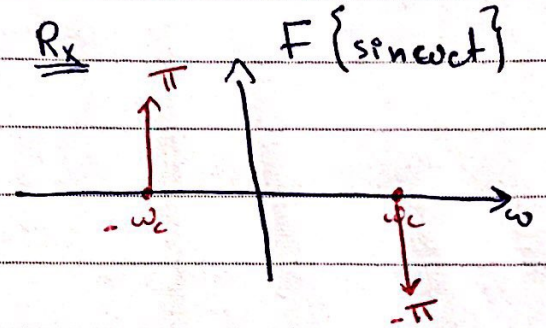 Rx F{sinωct}
π
-ωc ωc ω
-π